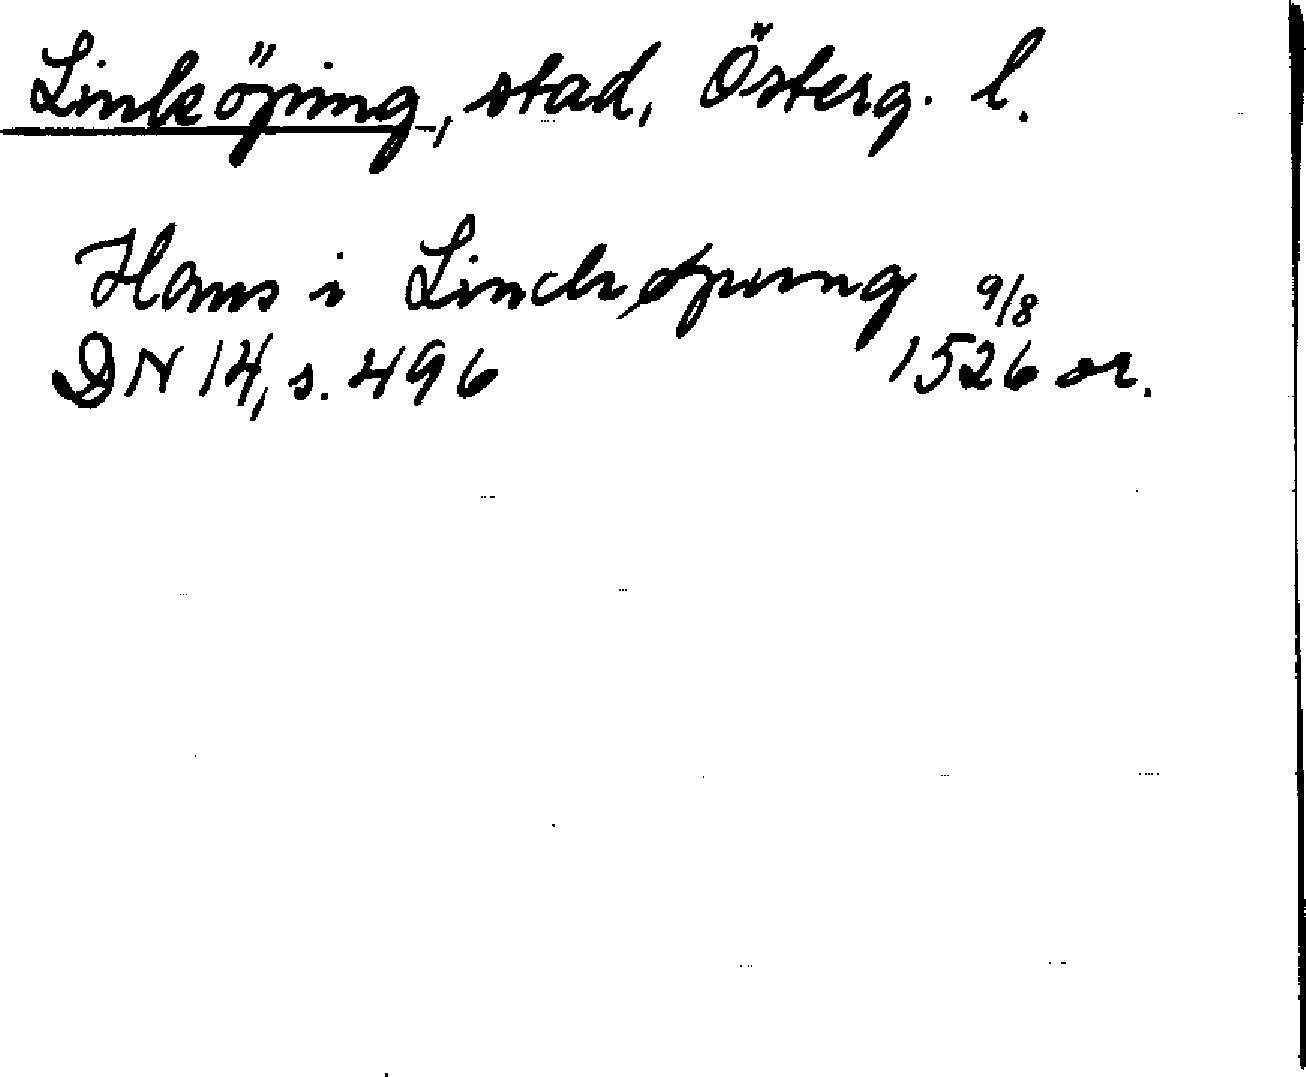 Linköping, stad, Österg. l.
Hans i Linchøpung 9/8
DN 14, s. 496 1526 or.